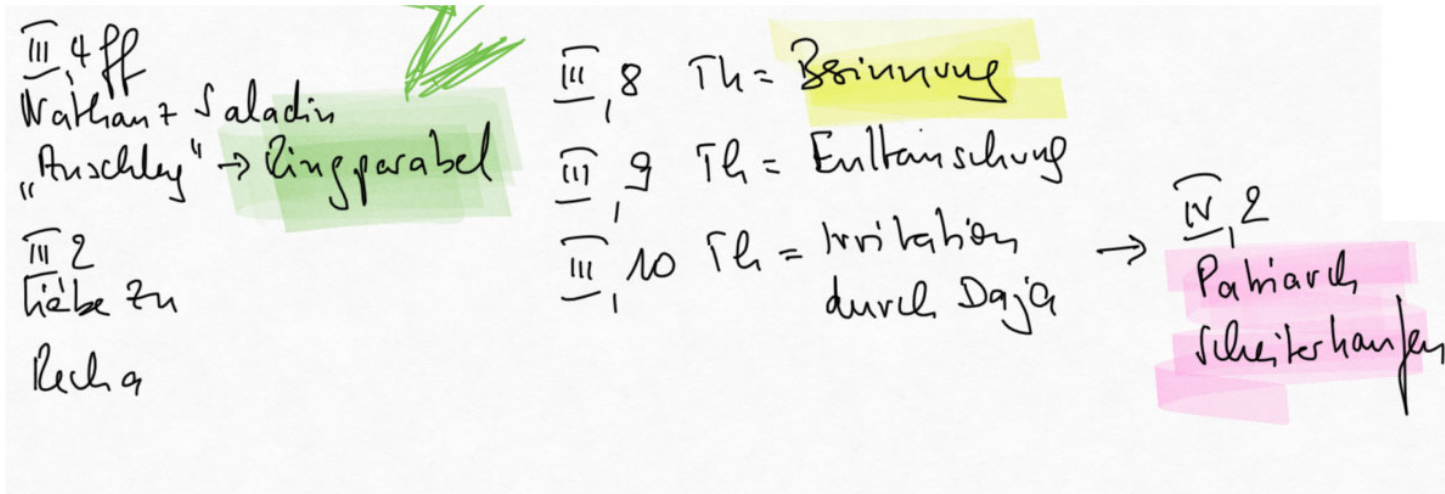 III,4ff
Nathan + Saladin
„Anschlag" → Ringparabel
III 2
Liebe zu
Recha
III,8 Th = Besinnung
III,9 Th = Enttäuschung
III,10 Th = Irritation
durch Daja
→ IV,2
Patriarch
Scheiterhaufen